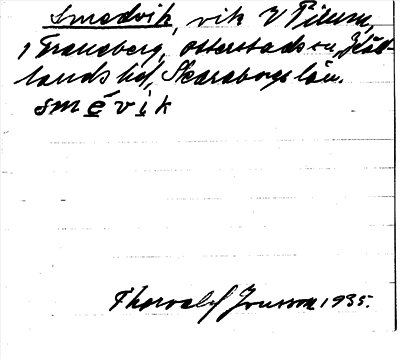 Smedvik, vik V Filum,
i Traneberg, Otterstads sn, Kål-
lands hd, Skaraborgs län.
smēvik
Thorvald Jonsson 1935.